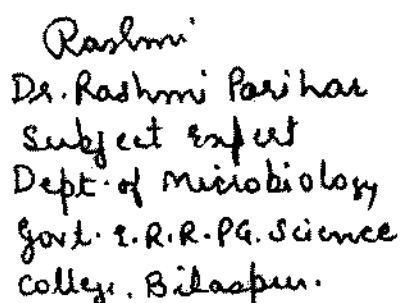 Rashmi
Dr. Rashmi Parihar
Subject Expert
Dept. of Microbiology
Govt. E.R.R.PG. Science
College. Bilaspur.